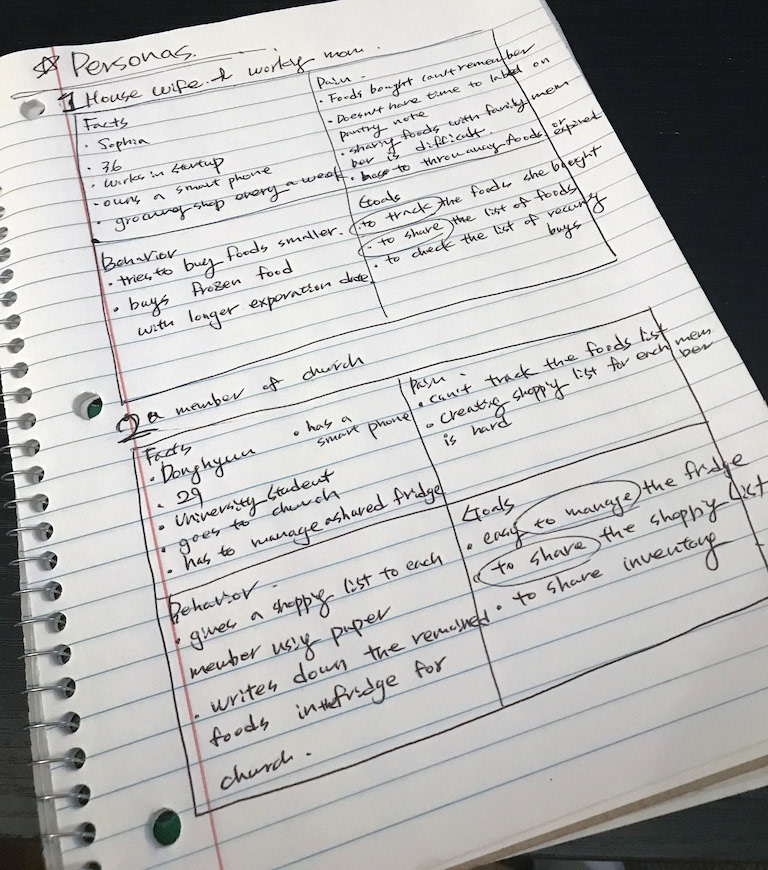 ☆ Personas.
1 House wife & working mom.
Facts
• Sophia
• 36
• works in startup
• owns a smart phone
• grocery shop every a week
Pain -
• Foods bought can't remember
• Doesn't have time to label on
pantry note
• sharing foods with family mem
ber is difficult.
• have to throw away foods or expired
Behavior
• tries to buy foods smaller.
• buys frozen food
with longer expiration date.
Goals
• to track the foods she bought
• to share the list of foods
• to check the list of recurring
buys
2 a member of church
Facts
• Donghyun
• 29
• University student
• goes to church
• has to manage a shared fridge
• has a
smart phone
Pain -
• can't track the foods list
• creating shopping list for each mem
ber
is hard
Behavior -
• gives a shopping list to each
member using paper
• writes down the remained
foods in the fridge for
church.
Goals
• easy to manage the fridge
• to share the shopping list
• to share inventory